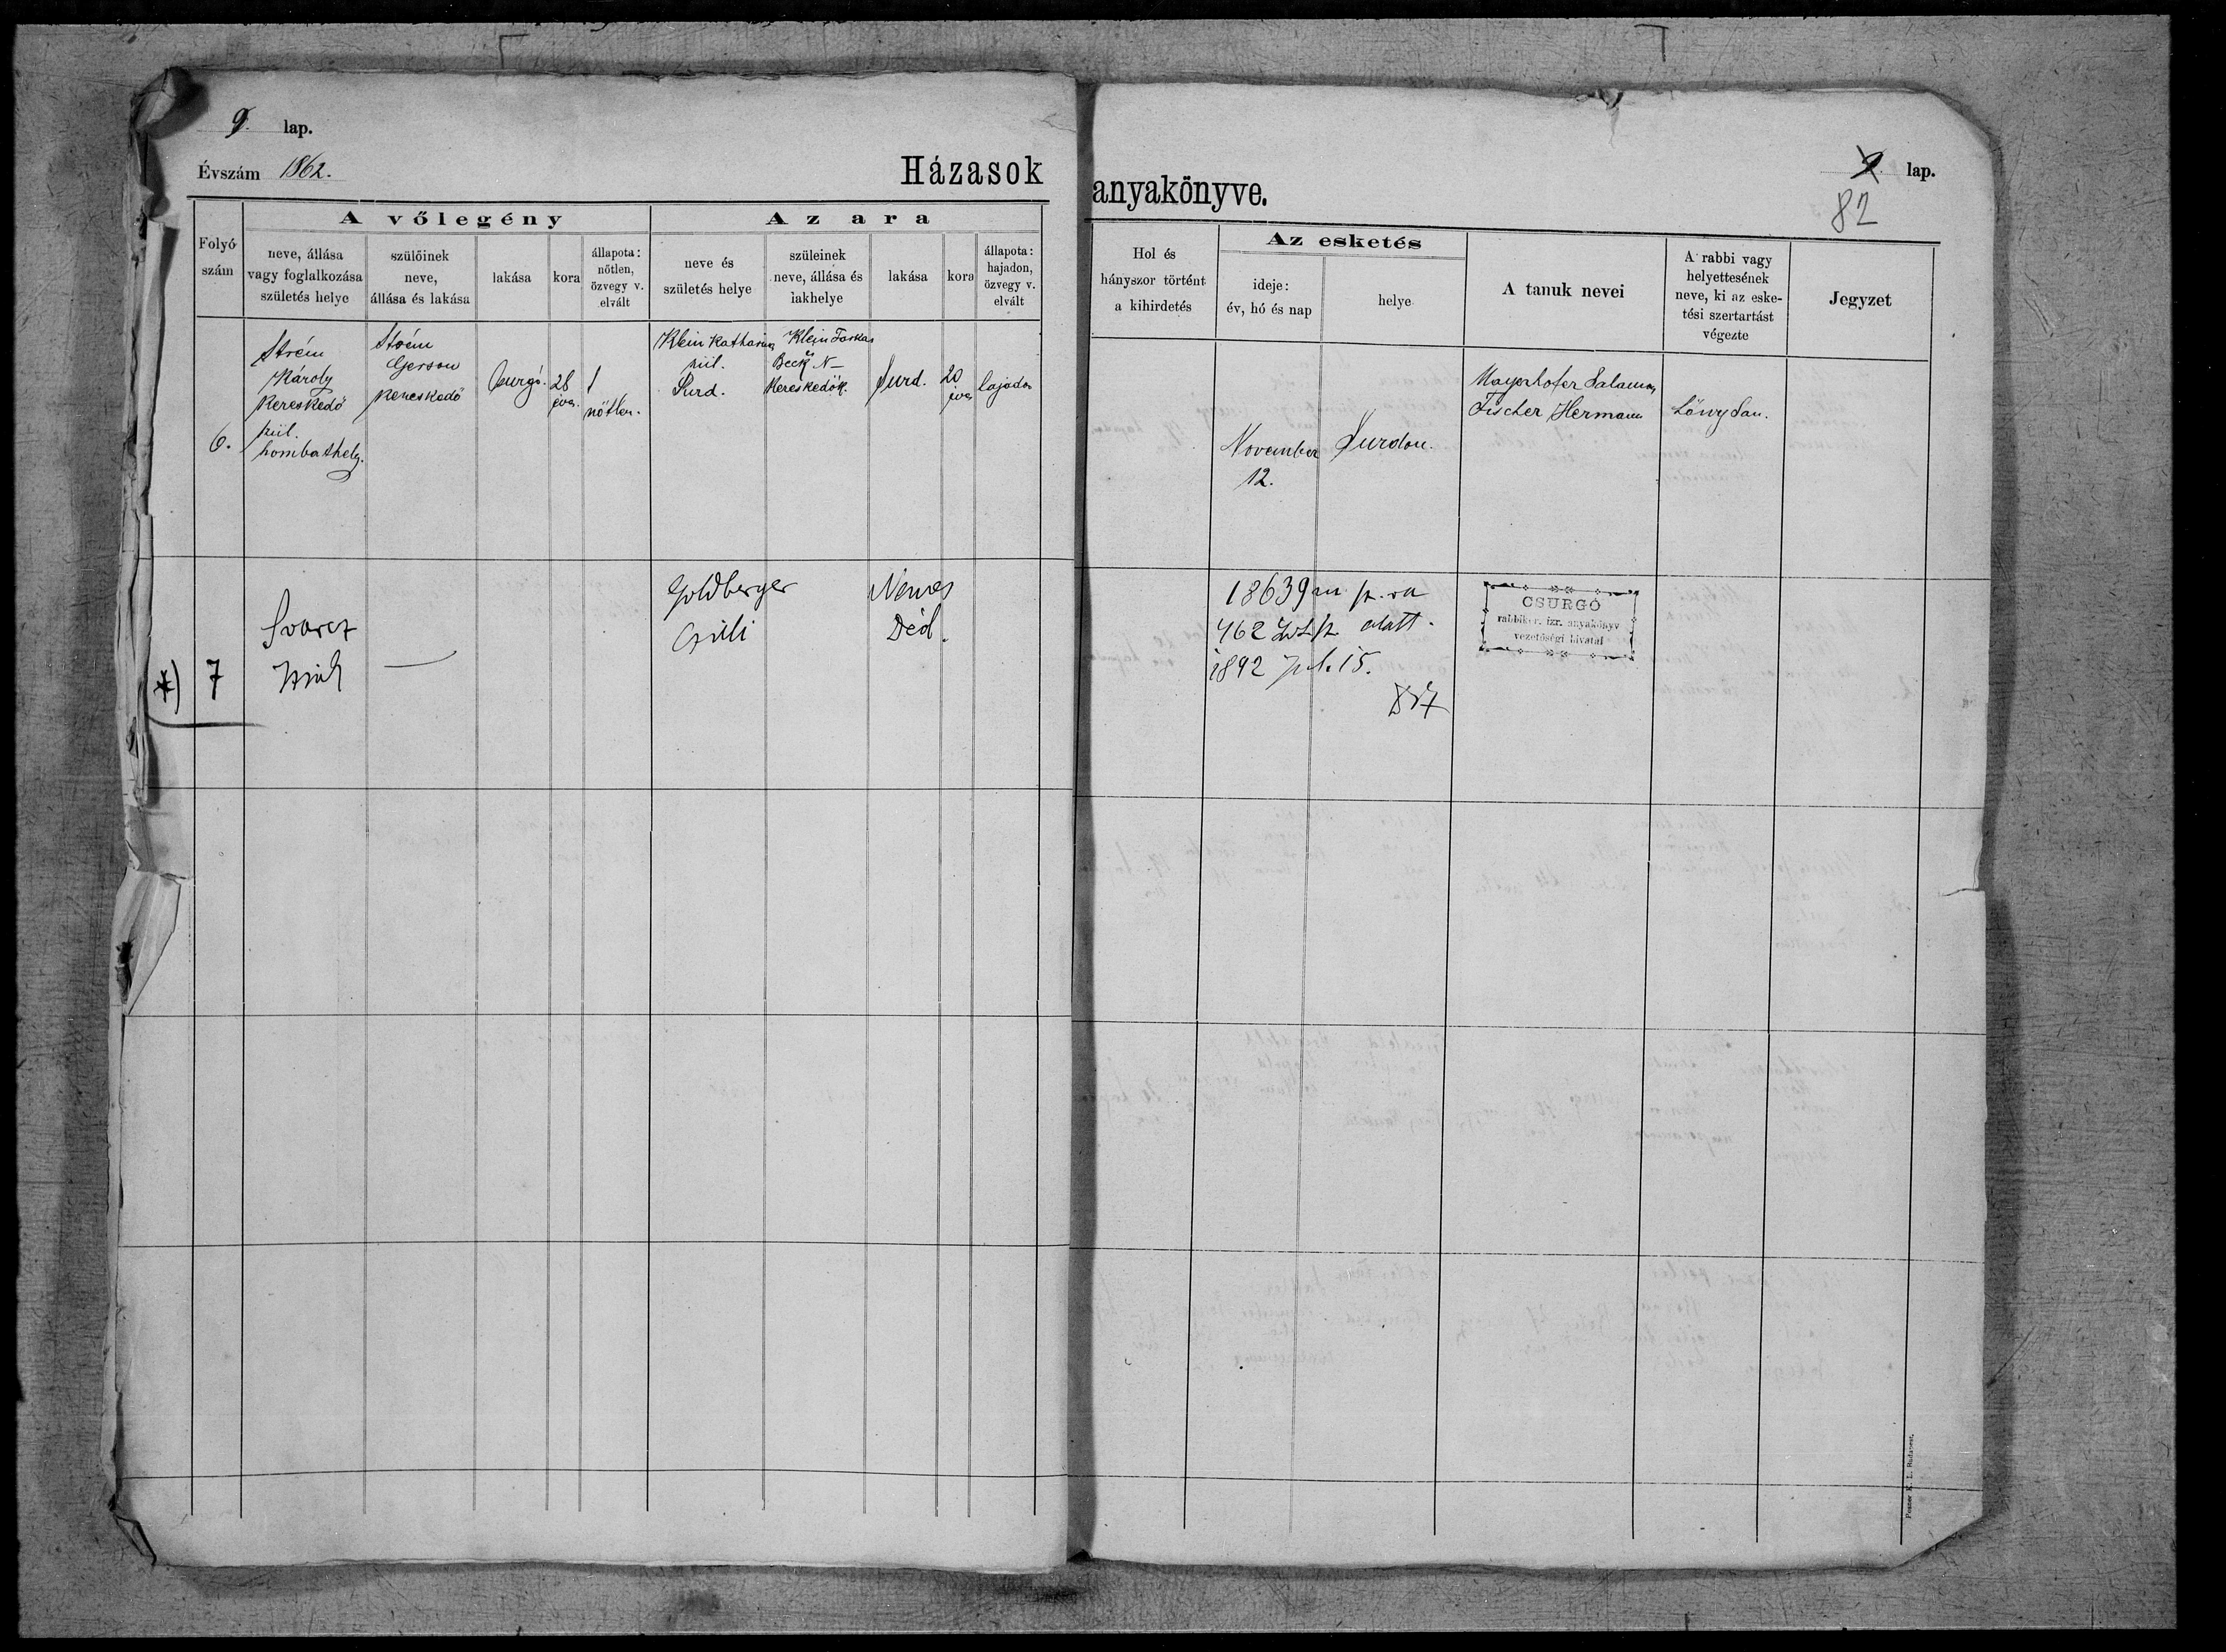 9. lap.
Évszám 1862.
Házasok
anyakönyve.
9. lap.
82
Folyó szám
A vőlegény
neve, állása
vagy foglalkozása
születés helye
szülőinek
neve,
állása és lakása
lakása
kora
állapota:
nőtlen,
özvegy v.
elvált
Az ara
neve és
születés helye
szüleinek
neve, állása és
iakhelye
lakása
kora
állapota:
hajadon,
özvegy v.
elvált
Hol és
hányszor történt
a kihirdetés
Az esketés
ideje:
év, hó és nap
helye
A tanuk nevei
A rabbi vagy
helyettesének
neve, ki az eske-
tési szertartást
végezte
Jegyzet
6.
Strém
Károly
kereskedő
szül.
Szombathely.
Strém
Gerson
kereskedő
Csurgó.
28
éves.
nőtlen.
Klein Katharina
szül.
Surd.
Klein Farkas
Beck N–
kereskedők.
Surd.
20
éves
hajadon
November
12.
Surdon.
Mayerhofer Salamon
Fischer Hermann
Lőwy Sam.
*) 7
Svarcz
—
Goldberger
Cili
Nemes
Déd.
18639 sz.
462 alatt.
1892 15.
CSURGÓ
rabbiker. izr. anyakönyv
vezetőségi hivatal
Posner K. L. Budapest.